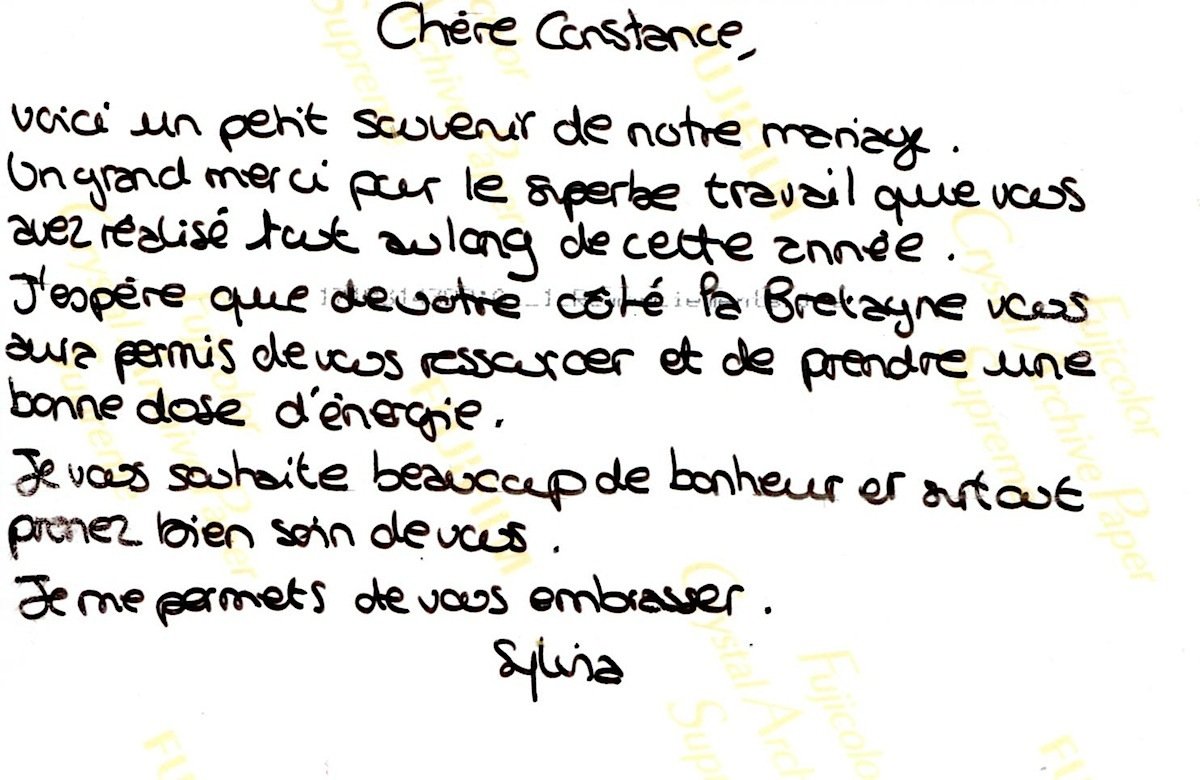 Chère Constance,
voici un petit souvenir de notre mariage.
Un grand merci pour le superbe travail que vous
avez réalisé tout au long de cette année.
J'espère que de votre côté la Bretagne vous
aura permis de vous ressourcer et de prendre une
bonne dose d'énergie.
Je vous souhaite beaucoup de bonheur et surtout
prenez bien soin de vous.
Je me permets de vous embrasser.
Sylvia
Fujicolor
Crystal Archive Paper
Supreme
FUJIFILM